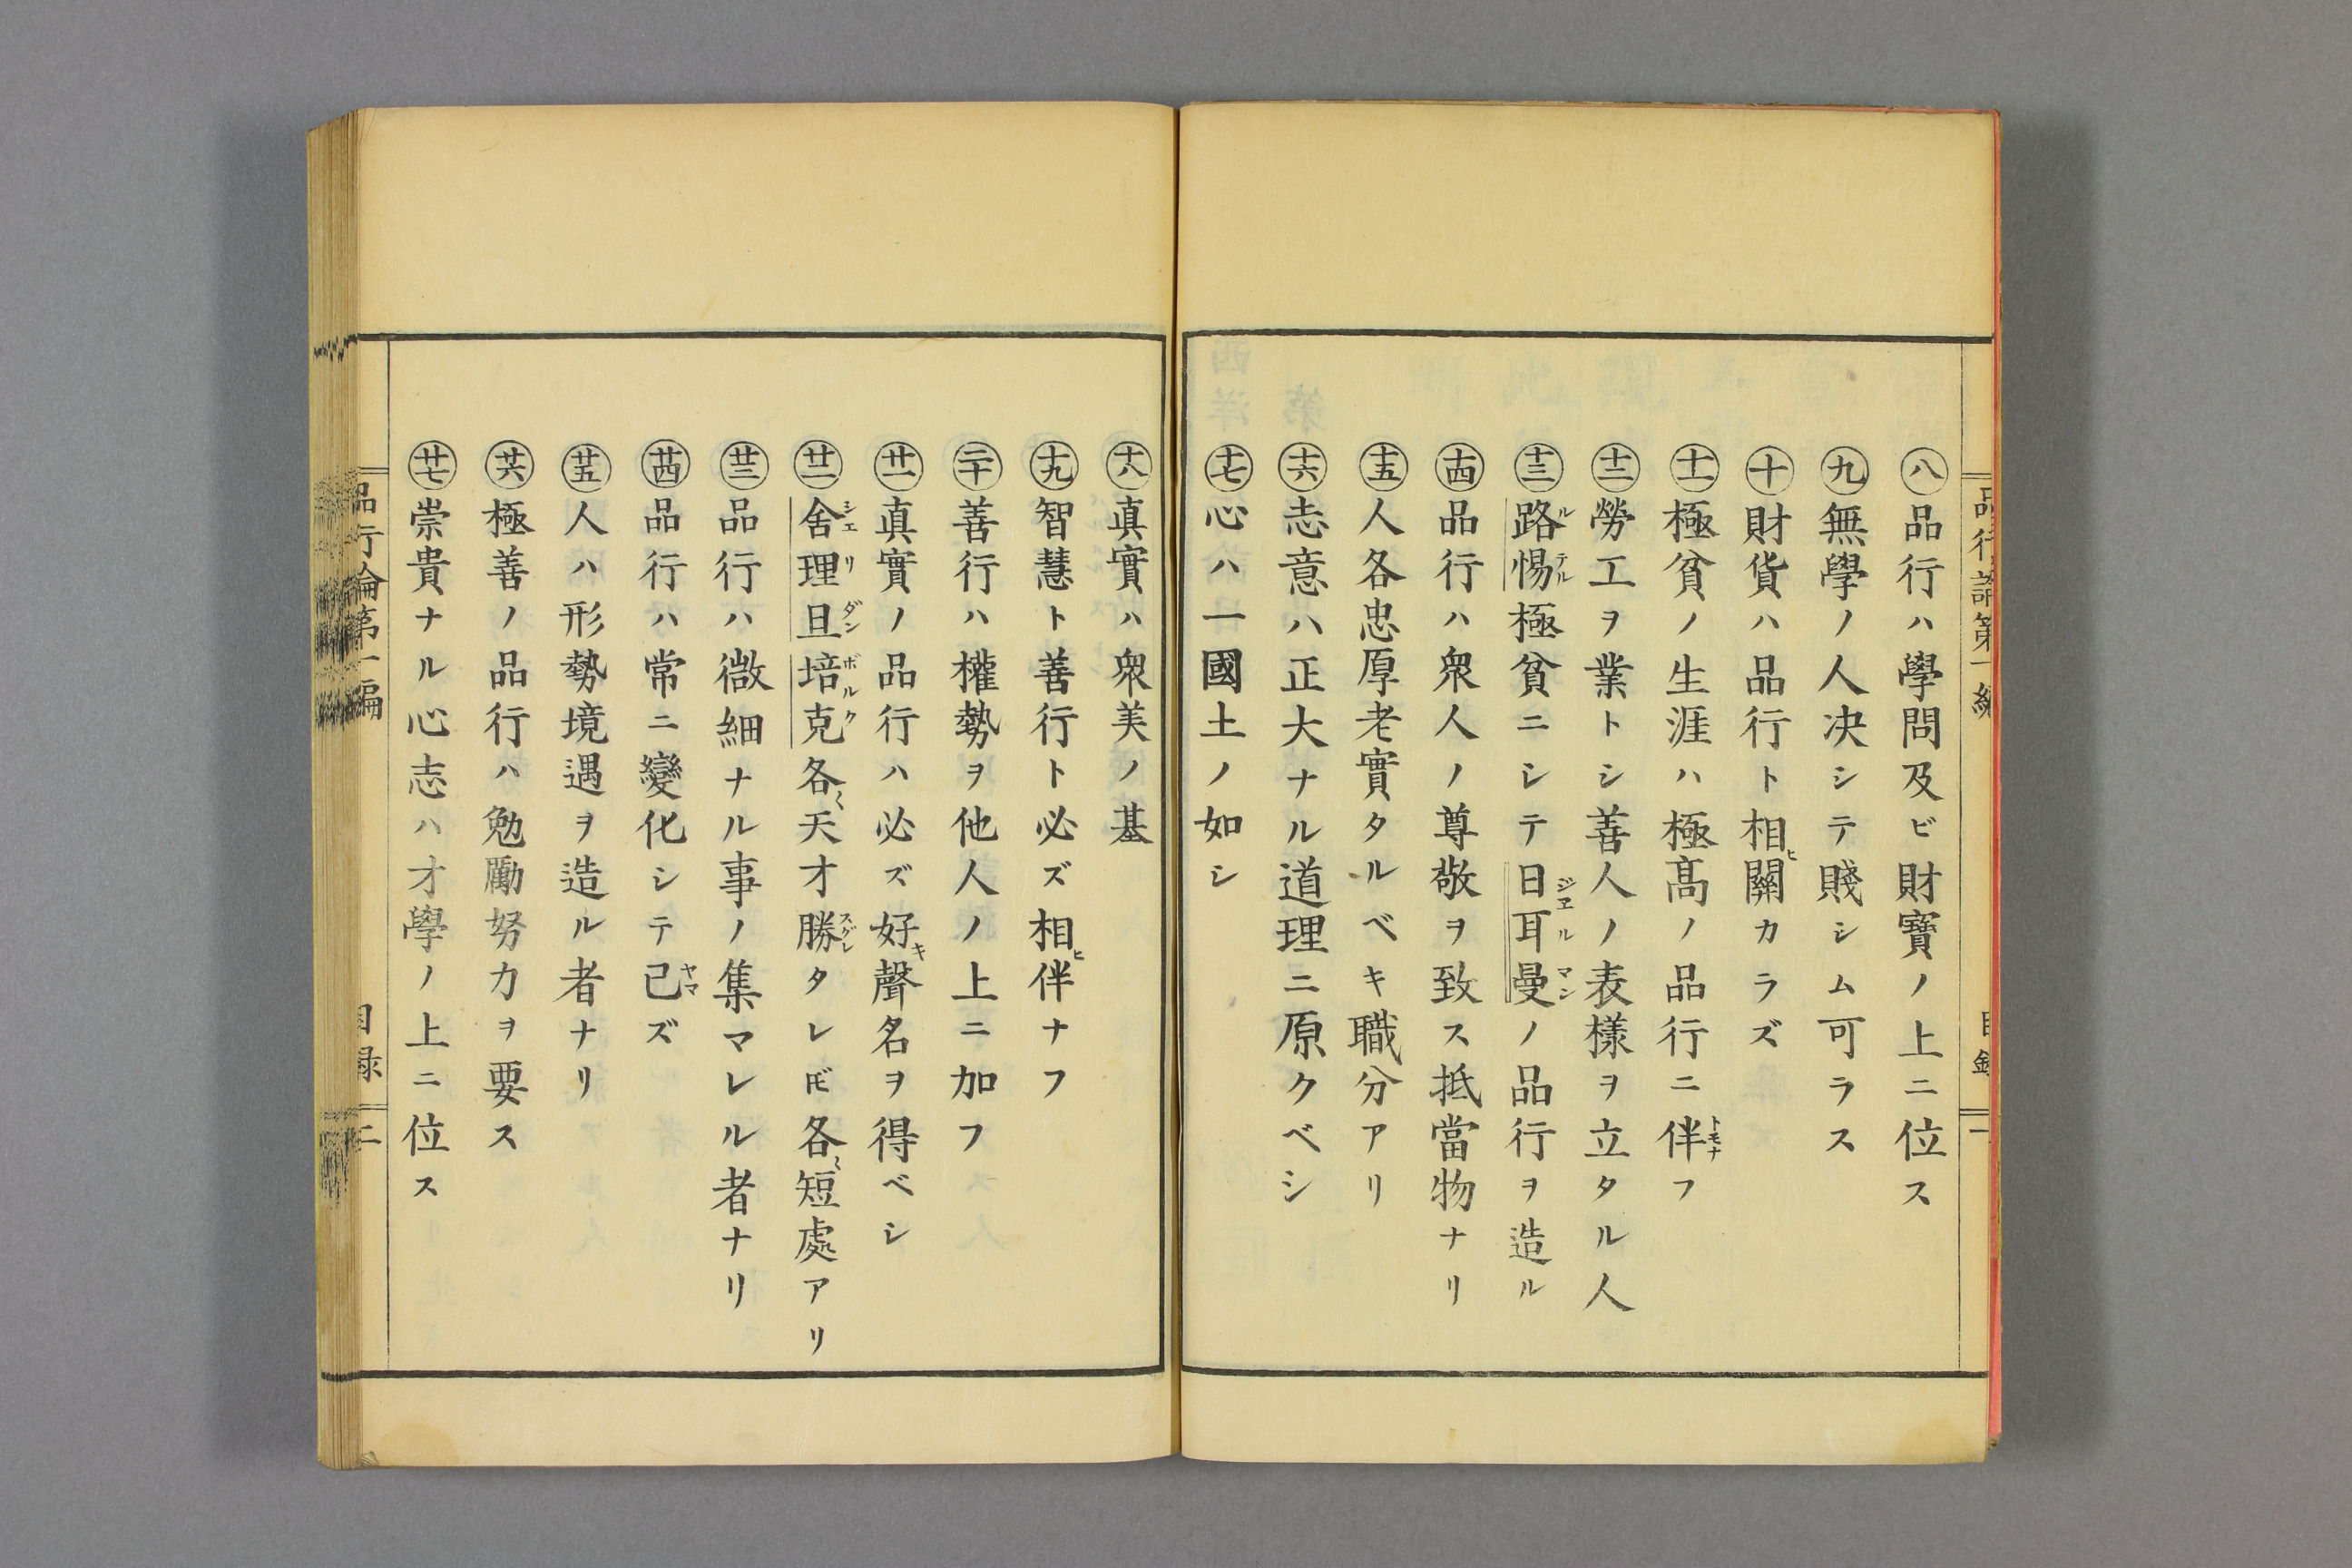 品行論第一編 目録 一
八 品行ハ學問及ビ財寶ノ上ニ位ス
九 無學ノ人决シテ賤シム可ラス
十 財貨ハ品行ト相ヒ關カラズ
十一 極貧ノ生涯ハ極髙ノ品行ニ伴トモナフ
十二 勞工ヲ業トシ善人ノ表樣ヲ立タル人
十三 路惕ルテル極貧ニシテ日耳曼ジヱルマンノ品行ヲ造ル
十四 品行ハ衆人ノ尊敬ヲ致ス抵當物ナリ
十五 人各忠厚老實タルベキ職分アリ
十六 志意ハ正大ナル道理ニ原クベシ
十七 心ハ一國土ノ如シ
十八 眞實ハ衆美ノ基
十九 智慧ト善行ト必ズ相ヒ伴ナフ
二十 善行ハ權勢ヲ他人ノ上ニ加フ
廿一 眞實ノ品行ハ必ズ好キ聲名ヲ得ベシ
廿二 舍理旦シエリダン培克ボルク各〻天才勝スグレタレ𪜈各〻短處アリ
廿三 品行ハ微細ナル事ノ集マレル者ナリ
廿四 品行ハ常ニ變化シテ已ヤマズ
廿五 人ハ形勢境遇ヲ造ル者ナリ
廿六 極善ノ品行ハ勉勵努力ヲ要ス
廿七 崇貴ナル心志ハ才學ノ上ニ位ス
品行論第一編 目録 二